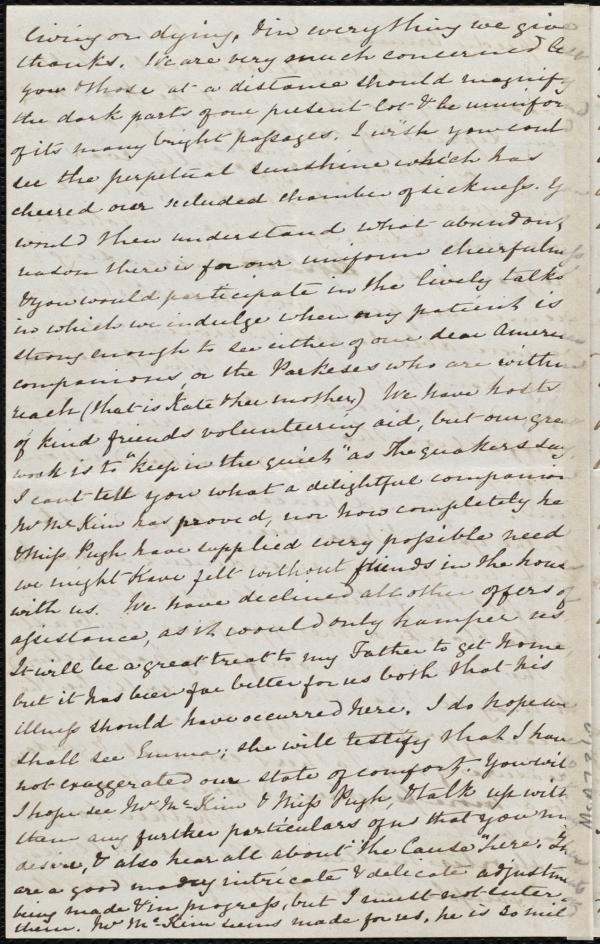 living or dying, & in everything we give
thanks. We are very much concerned les
you & those at a distance should magnify
the dark parts of our present lot & be uninfor
of its many bright passages. I wish you coul
see the perpetual sunshine which has
cheered our secluded chamber of sickness. You
would then understand what abundant
reason there is for our uniform cheerfulness
& you would participate in the lively talks
in which we indulge when my patient is
strong enough to see either of our dear Ameri
companions, or the Parkeses who are within
reach (that is Kate & her mother.) We have hosts
of kind friends volunteering aid, but our grea
work is to "keep in the quiet" as the quakers say
I cant tell you what a delightful companion
Mr. McKim has proved, nor how completely he
& Miss Pugh have supplied every possible need
we might have felt without friends in the house
with us. We have declined all other offers of
assistance, as it would only hamper us
It will be a great treat to my Father to get home
but it has been far better for us both that his
illness should have occurred here. I do hope you
shall see Emma; she will testify that I have
not exaggerated our state of comfort. You will
I hope see Mr. McKim & Miss Pugh, & talk up with
them any further particulars of us that you may
desire, & also hear all about "the Cause" here. There
are a good many intricate & delicate adjustmen
being made & in progress, but I must not enter
them. Mr. McKim seems made for us, he is so mil